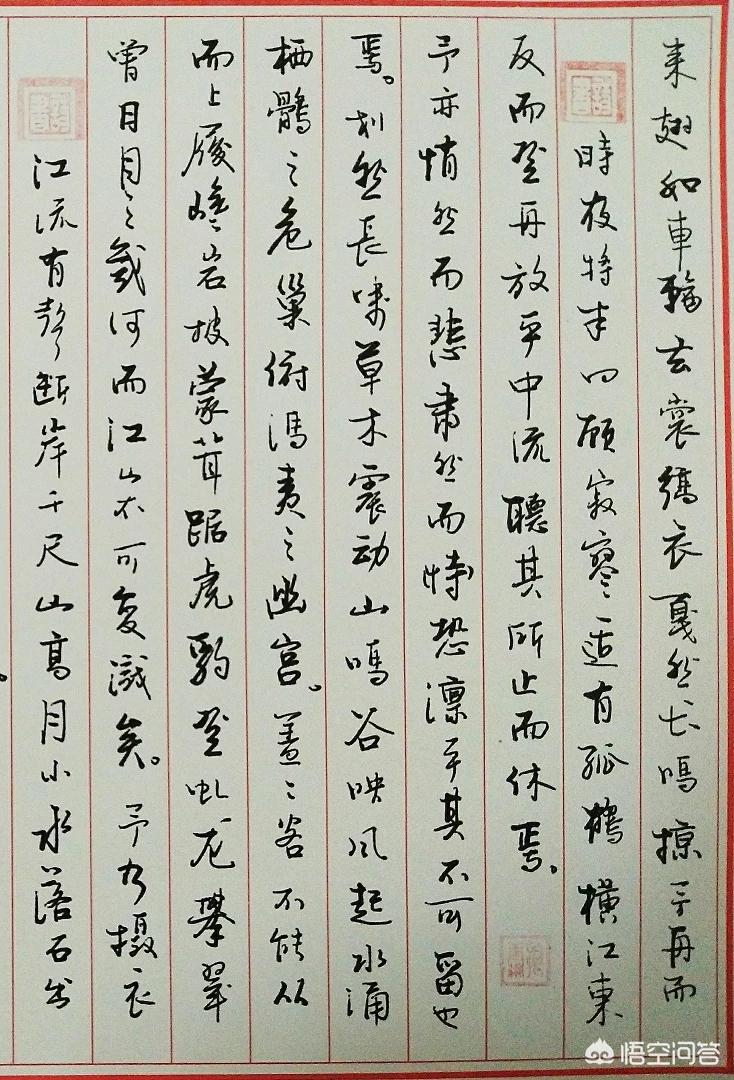 江流有聲斷岸千尺山高月小水落石出
曾日月之幾何而江山不可复識矣。予乃攝衣
而上履巉岩披蒙茸踞虎豹登虬龙攀翠
栖鶻之危巢俯馮夷之幽宫。蓋二客不能从
焉。划然長嘯草木震动山鳴谷映风起水涌
予亦悄然而悲肃然而恃恐凛乎其不可留也
反而登舟放乎中流聽其所止而休焉。
時夜將半四顧寂寥適有孤鶴橫江東
來翅如車輪玄裳縞衣戛然长鳴掠予舟而
悟空问答